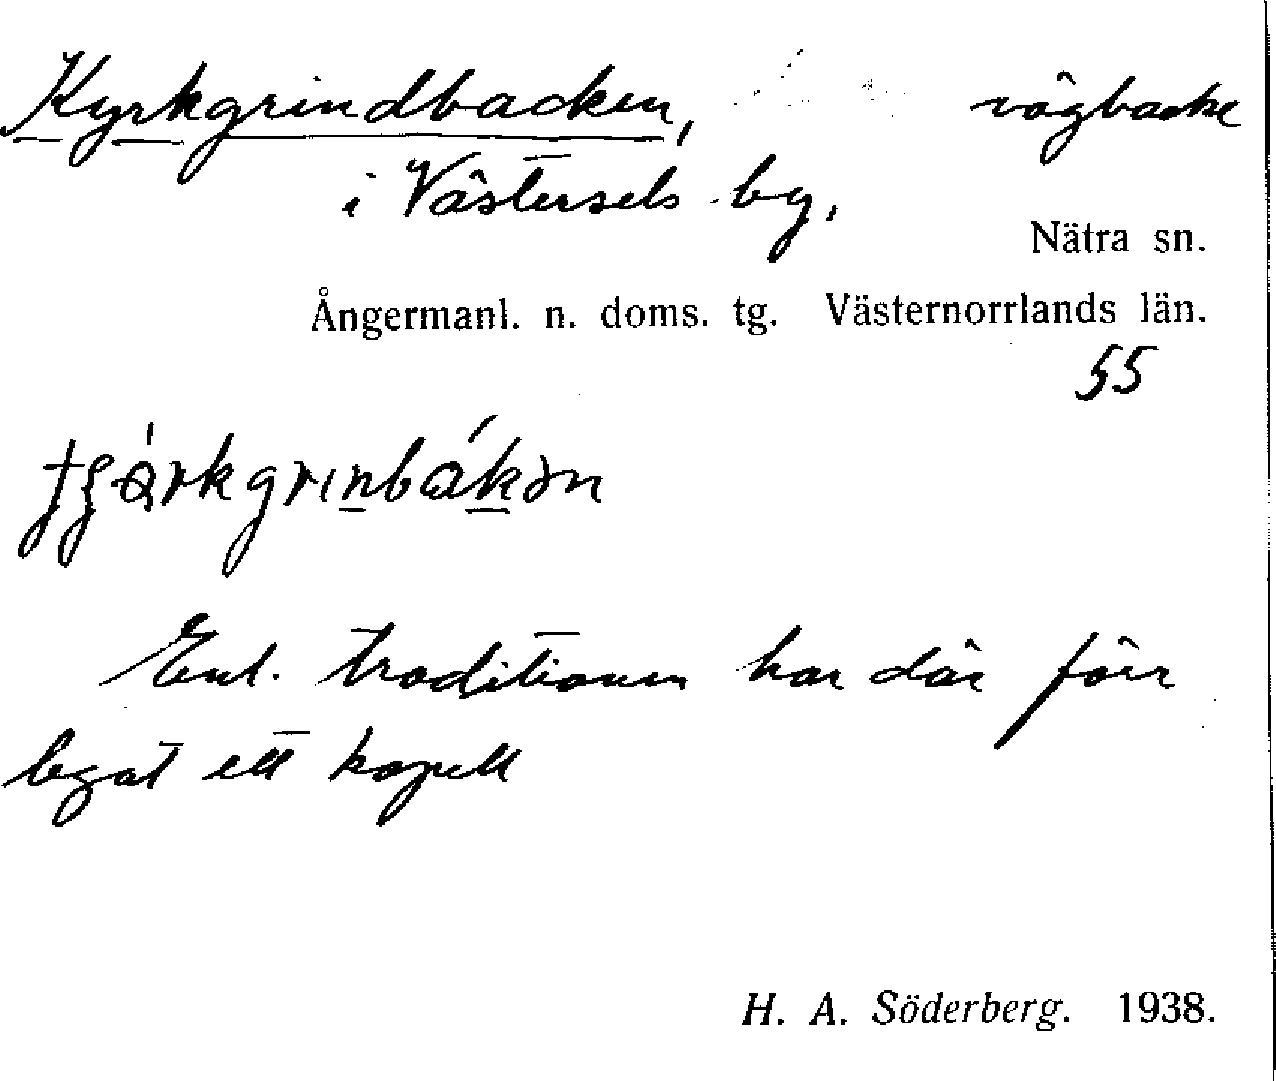 Kyrkgrindbacken, vägbacke
i Västersels by,
Nätra sn.
Ångermanl. n. doms. tg. Västernorrlands län.
55
Enl. traditionen har där förr
legat ett kapell
H. A. Söderberg. 1938.